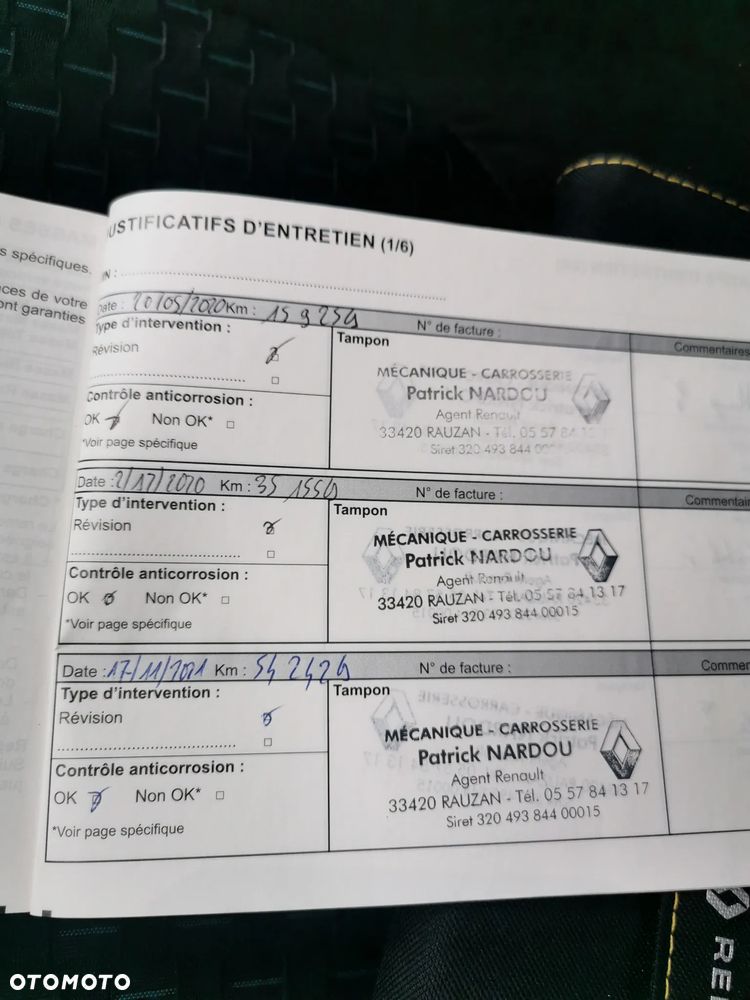 USTIFICATIFS D'ENTRETIEN (1/6)
s spécifiques.
IN :
ces de votre
ont garanties
Date : 20/05/2020 Km : 15 925 N° de facture : Commentaires
Type d'intervention :
Révision
Tampon
Contrôle anticorrosion :
OK Non OK*
*Voir page spécifique
MÉCANIQUE - CARROSSERIE
Patrick NARDOU
Agent Renault
33420 RAUZAN - Tél. 05 57 84
Siret 320 493 844
Date : 2/12/2020 Km : 35 155 N° de facture : Commentai
Type d'intervention :
Révision
Tampon
Contrôle anticorrosion :
OK Non OK*
*Voir page spécifique
MÉCANIQUE - CARROSSERIE
Patrick NARDOU
Agent Renault
33420 RAUZAN - Tél. 05 57 84 13 17
Siret 320 493 844 00015
Date : 17/11/2021 Km : 54 242 N° de facture : Commen
Type d'intervention :
Révision
Tampon
Contrôle anticorrosion :
OK Non OK*
*Voir page spécifique
MÉCANIQUE - CARROSSERIE
Patrick NARDOU
Agent Renault
33420 RAUZAN - Tél. 05 57 84 13 17
Siret 320 493 844 00015
REN
OTOMOTO